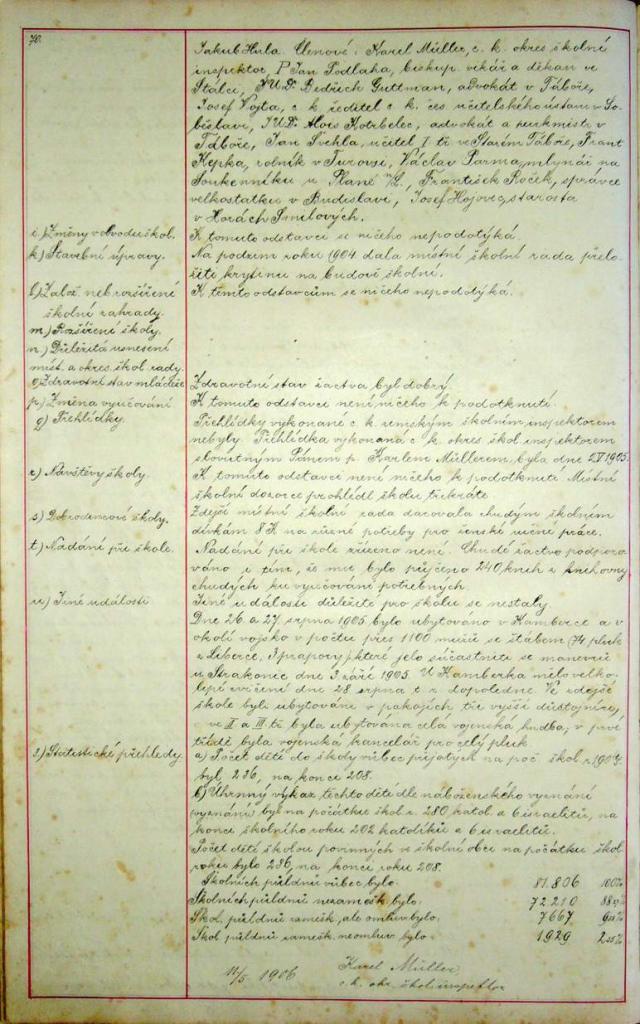 70.
Jakub Hula. Členové: Karel Müller, c. k. okres školní
inspektor, P Jan Podlaha, biskup. vikář a děkan ve
Stálci, JUDr Bedřich Guttman, advokát v Táboře,
Josef Vojta, c k ředitel c. k. čes učitelského ústavu v So-
běslavi, JUDr Alois Kotrbelec, advokát a purkmistr v
Táboře, Jan Švehla, učitel I tř ve Starém Táboře, Frant
Kepka, rolník v Turovci, Václav Parma, mlynář na
Soukenníku u Plané n/L., František Roček, správce
velkostatku v Budislavi, Josef Hojovec, starosta
v Horách Smilových.
i) Změny v obvodu škol. K tomuto odstavci se ničeho nepodotýká.
k) Stavební úpravy. Na podzim roku 1904 dala místní školní rada přelo-
žiti krytinu na budově školní.
l) Založ. neb rozšíření K těmto odstavcům se ničeho nepodotýká.
školní zahrady.
m) Rozšíření školy.
n) Důležitá usnesení
míst. a okres. škol. rady.
o) Zdravotní stav mládeže Zdravotní stav žactva byl dobrý.
p) Změna vyučování K tomuto odstavci není ničeho k podotknutí.
q) Přehlídky. Přehlídky vykonané c. k. zemským školním inspektorem
nebyly. Přehlídka vykonaná c. k. okres. škol. inspektorem
slovutným Pánem p. Karlem Müllerem, byla dne 2/V 1905.
r) Návštěvy školy. K tomuto odstavci není ničeho k podotknutí. Místní
školní dozorce prohlédl školu třikráte
s) Dobrodincové školy. Zdejší místní školní rada darovala chudým školním
dívkám 8 K na různé potřeby pro ženské ruční práce.
t) Nadání při škole. Nadání při škole zřízeno není. Chudé žactvo podporo-
váno i tím, že mu bylo půjčeno 240 knih z knihovny
chudých ku vyučování potřebných.
u) Jiné události Jiné události důležité pro školu se nestaly
Dne 26 a 27. srpna 1905 bylo ubytováno v Kamberce a v
okolí vojsko v počtu přes 1100 mužů se štábem (74. pluk
z Liberce, 3 prapory) které jelo súčastniti se manévrů
u Strakonic dne 3 září 1905. U Kamberka mělo velko-
lepé cvičení dne 28 srpna t r dopoledne. Ve zdejší
škole byli ubytováni v pokojích tři vyšší důstojníci,
ve II a III tř byla ubytována celá vojenská hudba, v prvé
třídě byla vojenská kancelář pro celý pluk
Statistické přehledy. a) Počet dětí do školy vůbec přijatých na poč škol r. 1904/5
byl 286, na konci 208.
b) Úhrnný výkaz těchto dětí dle náboženského vyznání
(vyznání) byl na počátku škol r. 280 katol. a 6 israelitů, na
konci školního roku 202 katolíků a 6 israelitů.
Počet dětí školou povinných ve školní obci na počátku škol
roku bylo 286, na konci roku 208.
Školních půldnů vůbec bylo 81.806 100%
Školních půldnů nezamešk. bylo 72210
Škol. půldnů zamešk., ale omluv bylo 7667
Škol půldnů zamešk. neomluv bylo 1929
11/5 1906 Karel Müller,
c. k. okr. školní inspektor